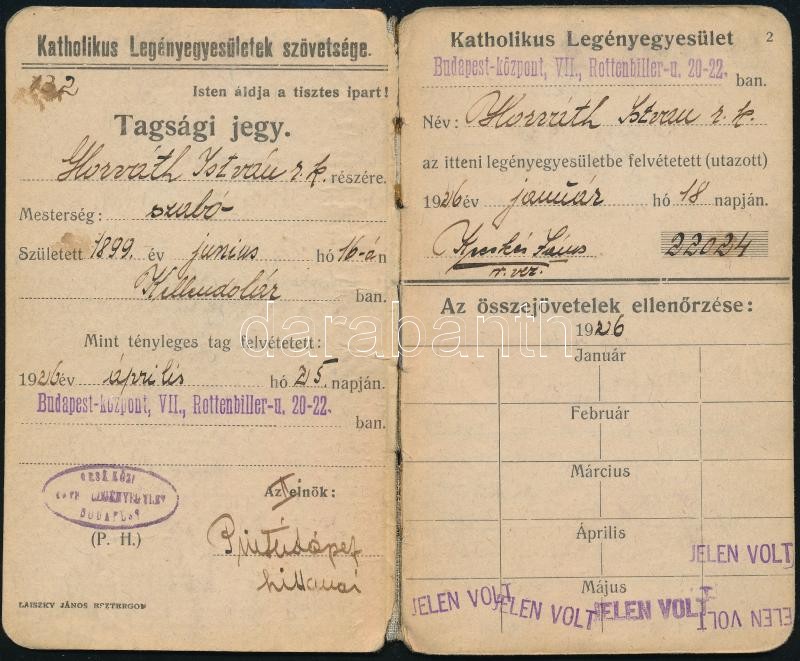 Katholikus Legényegyesületek szövetsége.
132
Isten áldja a tisztes ipart!
Tagsági jegy.
Horváth István r. k. részére.
Mesterség: szabó
Született 1899. év junius hó 16-án
ban.
Mint tényleges tag felvétetett:
1926 év április hó 25. napján.
Budapest-központ, VII., Rottenbiller-u. 20-22.
ban.
BUDAPEST
Az elnök:
(P. H.)
hittanár
LAISZKY JÁNOS ESZTERGOM
Katholikus Legényegyesület 2
Budapest-központ, VII., Rottenbiller-u. 20-22. ban.
Név: Horváth István r. k.
az itteni legényegyesületbe felvétetett (utazott)
1926 év január hó 18 napján.
22024
Az összejövetelek ellenőrzése:
1926
Január
Február
Március
Április
JELEN VOLT
Május
JELEN VOLT JELEN VOLT JELEN VOLT JELEN VOLT
darabanth